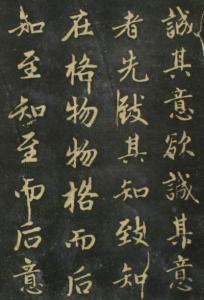 誠其意欲誠其意
者先致其知致知
在格物物格而后
知至知至而后意